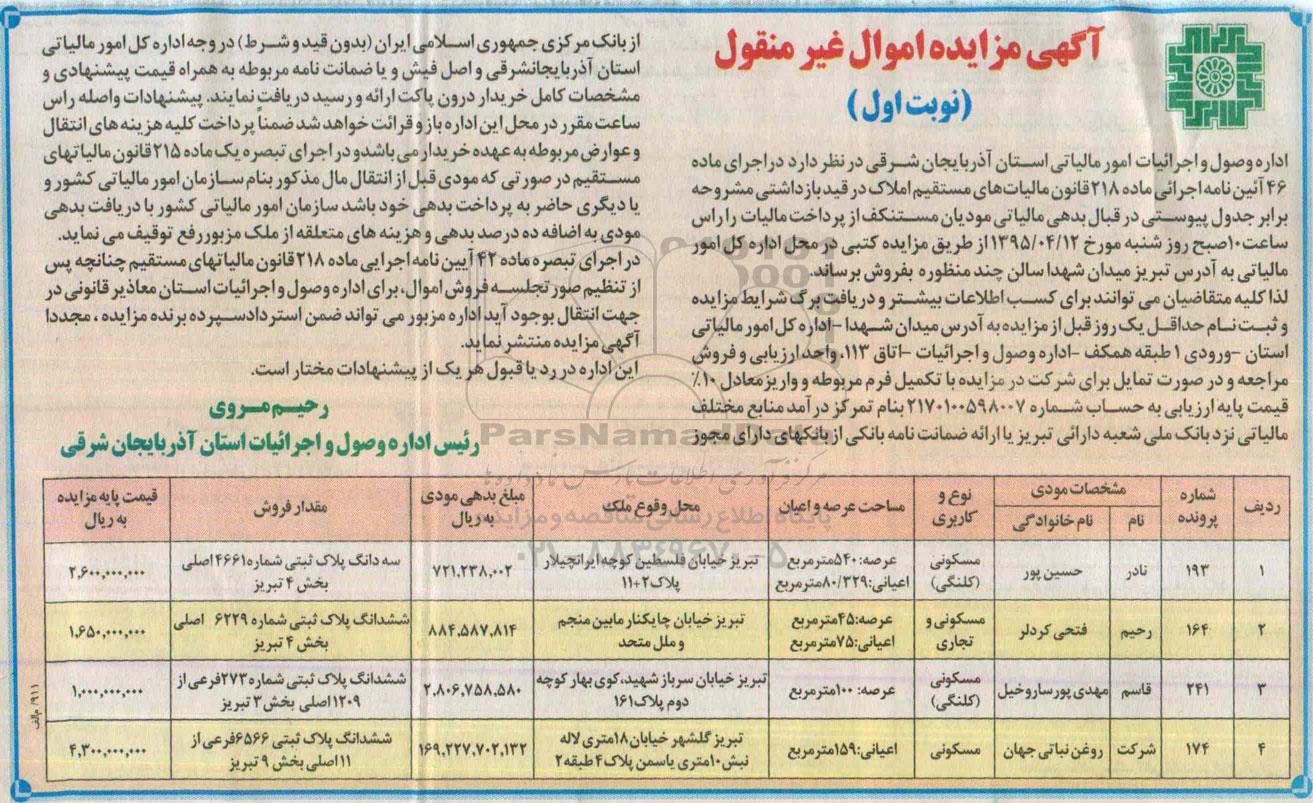 آگهی مزایده اموال غیر منقول
(نوبت اول)
اداره وصول و اجرائیات امور مالیاتی استان آذربایجان شرقی در نظر دارد در اجرای ماده
۴۶ آئین نامه اجرائی ماده ۲۱۸ قانون مالیات‌های مستقیم املاک در قید بازداشتی مشروحه
برابر جدول پیوستی در قبال بدهی مالیاتی مودیان مستنکف از پرداخت مالیات را راس
ساعت ۱۰ صبح روز شنبه مورخ ۱۳۹۵/۰۴/۱۲ از طریق مزایده کتبی در محل اداره کل امور
مالیاتی به آدرس تبریز میدان شهدا سالن چند منظوره بفروش برساند.
لذا کلیه متقاضیان می توانند برای کسب اطلاعات بیشتر و دریافت برگ شرایط مزایده
و ثبت نام حداقل یک روز قبل از مزایده به آدرس میدان شهدا –اداره کل امور مالیاتی
استان –ورودی ۱ طبقه همکف –اداره وصول و اجرائیات –اتاق ۱۱۳، واحد ارزیابی و فروش
مراجعه و در صورت تمایل برای شرکت در مزایده با تکمیل فرم مربوطه و واریز معادل ۱۰٪
قیمت پایه ارزیابی به حساب شماره ۲۱۷۰۱۰۰۵۹۸۰۰۷ بنام تمرکز درآمد منابع مختلف
مالیاتی نزد بانک ملی شعبه دارائی تبریز یا ارائه ضمانت نامه بانکی از بانکهای دارای مجوز
از بانک مرکزی جمهوری اسلامی ایران (بدون قید و شرط) در وجه اداره کل امور مالیاتی
استان آذربایجانشرقی و اصل فیش و یا ضمانت نامه مربوطه به همراه قیمت پیشنهادی و
مشخصات کامل خریدار درون پاکت ارائه و رسید دریافت نمایند. پیشنهادات واصله راس
ساعت مقرر در محل این اداره باز و قرائت خواهد شد ضمناً پرداخت کلیه هزینه های انتقال
و عوارض مربوطه به عهده خریدار می باشد و در اجرای تبصره یک ماده ۲۱۵ قانون مالیاتهای
مستقیم در صورتی که مودی قبل از انتقال مال مذکور بنام سازمان امور مالیاتی کشور و
یا دیگری حاضر به پرداخت بدهی خود باشد سازمان امور مالیاتی کشور با دریافت بدهی
مودی به اضافه ده درصد بدهی و هزینه های متعلقه از ملک مزبور رفع توقیف می نماید.
در اجرای تبصره ماده ۴۲ آیین نامه اجرایی ماده ۲۱۸ قانون مالیاتهای مستقیم چنانچه پس
از تنظیم صورتجلسه فروش اموال، برای اداره وصول و اجرائیات استان معاذیر قانونی در
جهت انتقال بوجود آید اداره مزبور می تواند ضمن استرداد سپرده برنده مزایده ، مجددا
آگهی مزایده منتشر نماید.
این اداره در رد یا قبول هر یک از پیشنهادات مختار است.
رحیم مروی
رئیس اداره وصول و اجرائیات استان آذربایجان شرقی
ParsNamadData
مرکز فرآوری اطلاعات پارس نماد داده ها
پایگاه اطلاع رسانی مناقصه و مزایده
۰۲۱-۸۸۳۴۹۶۷۰-۵
ردیف شماره پرونده مشخصات مودی نوع و کاربری مساحت عرصه و اعیان محل وقوع ملک مبلغ بدهی مودی به ریال مقدار فروش قیمت پایه مزایده به ریال
نام نام خانوادگی
۱ ۱۹۳ نادر حسین پور مسکونی (کلنگی) عرصه: ۵۴۰ مترمربع اعیانی: ۸۰/۳۲۹ مترمربع تبریز خیابان فلسطین کوچه ایرانچیلار پلاک ۲+۱۱ ۷۲۱,۲۳۸,۰۰۲ سه دانگ پلاک ثبتی شماره ۴۶۶۱ اصلی بخش ۴ تبریز ۲,۶۰۰,۰۰۰,۰۰۰
۲ ۱۶۴ رحیم فتحی کردلر مسکونی و تجاری عرصه: ۴۵ مترمربع اعیانی: ۷۵ مترمربع تبریز خیابان چایکنار مابین منجم و ملل متحد ۸۸۴,۵۸۷,۸۱۴ ششدانگ پلاک ثبتی شماره ۶۲۲۹ اصلی بخش ۴ تبریز ۱,۶۵۰,۰۰۰,۰۰۰
۳ ۲۴۱ قاسم مهدی پور ساروخیل مسکونی (کلنگی) عرصه: ۱۰۰ مترمربع تبریز خیابان سرباز شهید، کوی بهار کوچه دوم پلاک ۱۶۱ ۲,۸۰۶,۷۵۸,۵۸۰ ششدانگ پلاک ثبتی شماره ۲۷۳ فرعی از ۱۲۰۹ اصلی بخش ۳ تبریز ۱,۰۰۰,۰۰۰,۰۰۰
۴ ۱۷۴ شرکت روغن نباتی جهان مسکونی اعیانی: ۱۵۹ مترمربع تبریز گلشهر خیابان ۱۸ متری لاله نبش ۱۰ متری یاسمن پلاک ۴ طبقه ۲ ۱۶۹,۲۲۷,۷۰۲,۱۳۲ ششدانگ پلاک ثبتی ۶۵۶۶ فرعی از ۱۱ اصلی بخش ۹ تبریز ۴,۳۰۰,۰۰۰,۰۰۰
۹۱۱/ م الف